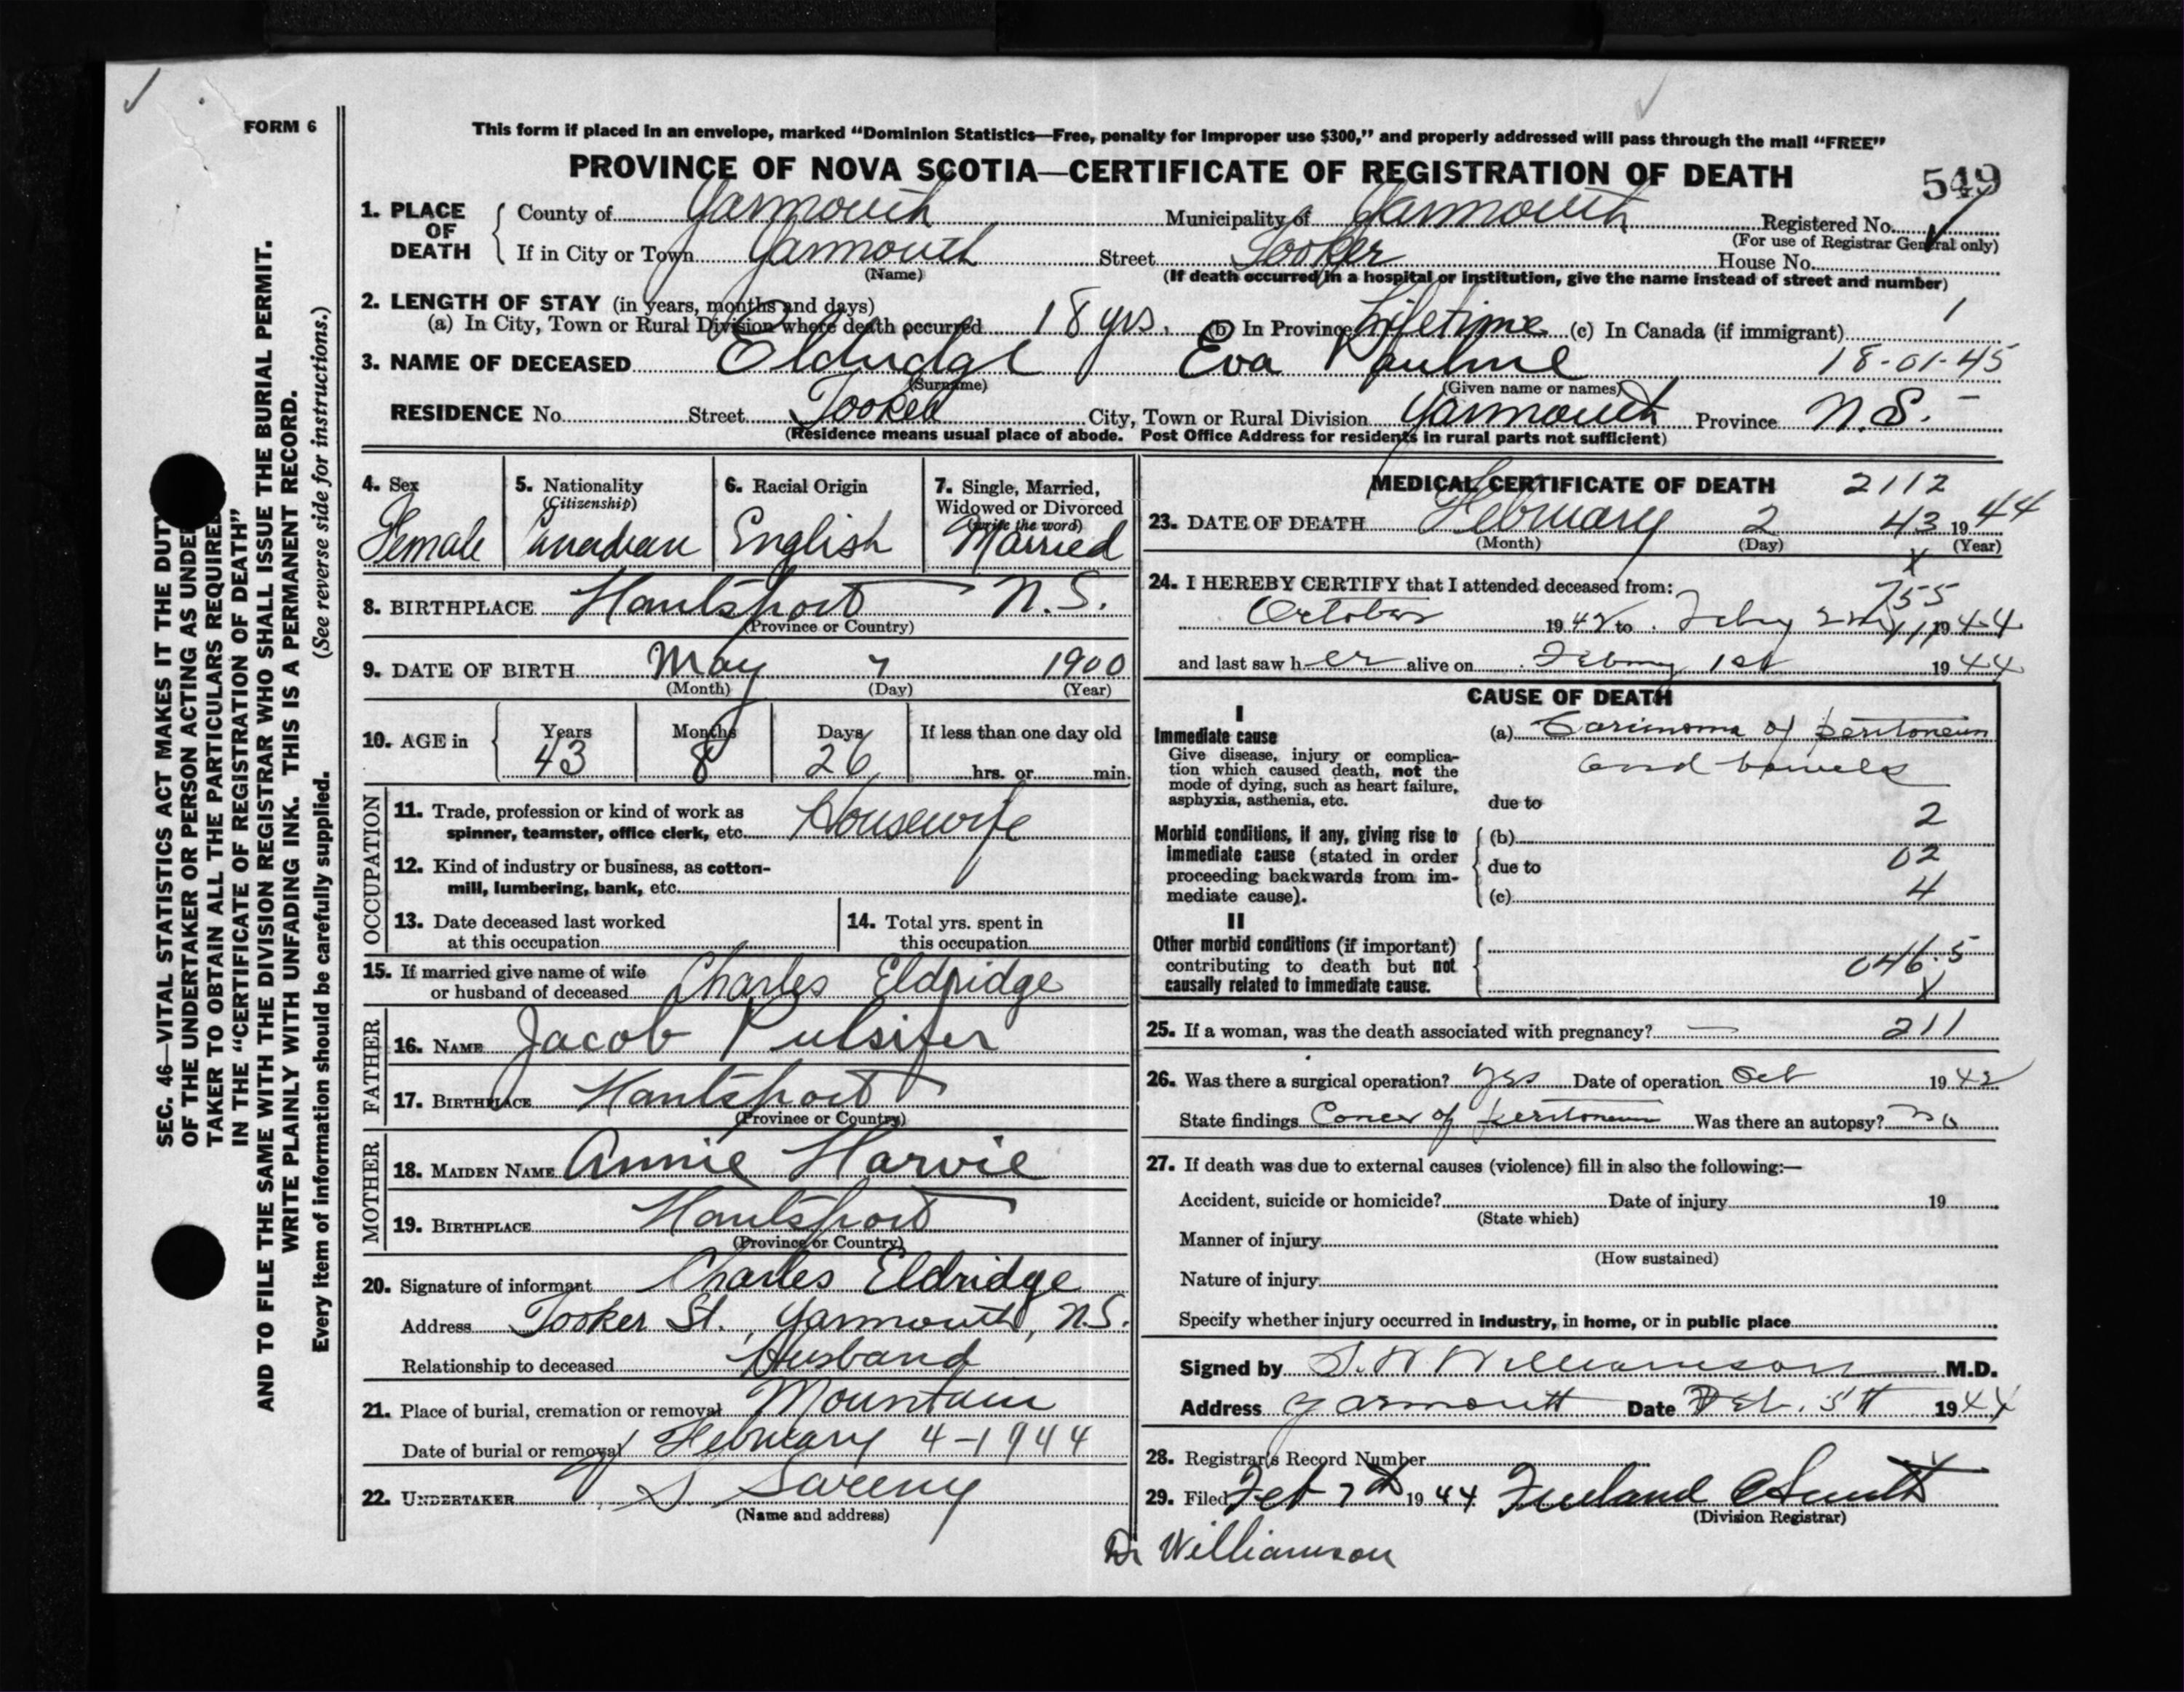 FORM 6
This form if placed in an envelope, marked “Dominion Statistics—Free, penalty for improper use $300,” and properly addressed will pass through the mail “FREE”
PROVINCE OF NOVA SCOTIA—CERTIFICATE OF REGISTRATION OF DEATH
549
1. PLACE OF DEATH
County of Yarmouth Municipality of Yarmouth Registered No.
(For use of Registrar General only)
If in City or Town Yarmouth Street Tooker House No.
(Name) (If death occurred in a hospital or institution, give the name instead of street and number)
2. LENGTH OF STAY (in years, months and days)
(a) In City, Town or Rural Division where death occurred 18 yrs. (b) In Province Lifetime (c) In Canada (if immigrant) 1
3. NAME OF DECEASED Eldridge Eva Pauline 18-01-45
(Surname) (Given name or names)
RESIDENCE No. Street Tooker City, Town or Rural Division Yarmouth Province N.S.
(Residence means usual place of abode. Post Office Address for residents in rural parts not sufficient)
4. Sex
Female
5. Nationality
(Citizenship)
Canadian
6. Racial Origin
English
7. Single, Married,
Widowed or Divorced
(write the word)
Married
8. BIRTHPLACE Hantsport N.S.
(Province or Country)
9. DATE OF BIRTH May 7 1900
(Month) (Day) (Year)
10. AGE in Years Months Days If less than one day old
43 8 26 hrs. or min.
OCCUPATION
11. Trade, profession or kind of work as
spinner, teamster, office clerk, etc. Housewife
12. Kind of industry or business, as cotton-
mill, lumbering, bank, etc.
13. Date deceased last worked
at this occupation
14. Total yrs. spent in
this occupation
15. If married give name of wife
or husband of deceased Charles Eldridge
FATHER
16. NAME Jacob Pulsifer
17. BIRTHPLACE Hantsport
(Province or Country)
MOTHER
18. MAIDEN NAME Annie Harvie
19. BIRTHPLACE Hantsport
(Province or Country)
20. Signature of informant Charles Eldridge
Address Tooker St., Yarmouth, N.S.
Relationship to deceased Husband
21. Place of burial, cremation or removal Mountain
Date of burial or removal February 4-1944
22. UNDERTAKER
(Name and address)
MEDICAL CERTIFICATE OF DEATH 2112
23. DATE OF DEATH February 2 43 19 44
(Month) (Day) (Year)
x
24. I HEREBY CERTIFY that I attended deceased from:
755
October 19 42 to Feby 2nd 19 44
and last saw h er alive on Febry 1st 19 44
CAUSE OF DEATH
I
Immediate cause
Give disease, injury or complica-
tion which caused death, not the
mode of dying, such as heart failure,
asphyxia, asthenia, etc.
(a) Carcinoma of peritoneum
and bowels
due to
2
Morbid conditions, if any, giving rise to
immediate cause (stated in order
proceeding backwards from im-
mediate cause).
(b)
02
due to
4
(c)
II
Other morbid conditions (if important)
contributing to death but not
causally related to immediate cause.
046.5
x
25. If a woman, was the death associated with pregnancy? — 211
26. Was there a surgical operation? Yes Date of operation Oct 19 42
State findings Cancer of peritoneum Was there an autopsy? No
27. If death was due to external causes (violence) fill in also the following:—
Accident, suicide or homicide? Date of injury 19
(State which)
Manner of injury
(How sustained)
Nature of injury
Specify whether injury occurred in industry, in home, or in public place
Signed by S. W. Williamson M.D.
Address Yarmouth Date Feb. 5th 1944
28. Registrar's Record Number
29. Filed Feb 7th 19 44
(Division Registrar)
Dr Williamson
SEC. 46—VITAL STATISTICS ACT MAKES IT THE DUTY
OF THE UNDERTAKER OR PERSON ACTING AS UNDER
TAKER TO OBTAIN ALL THE PARTICULARS REQUIRED
IN THE “CERTIFICATE OF REGISTRATION OF DEATH”
AND TO FILE THE SAME WITH THE DIVISION REGISTRAR WHO SHALL ISSUE THE BURIAL PERMIT.
WRITE PLAINLY WITH UNFADING INK. THIS IS A PERMANENT RECORD.
Every item of information should be carefully supplied. (See reverse side for instructions.)